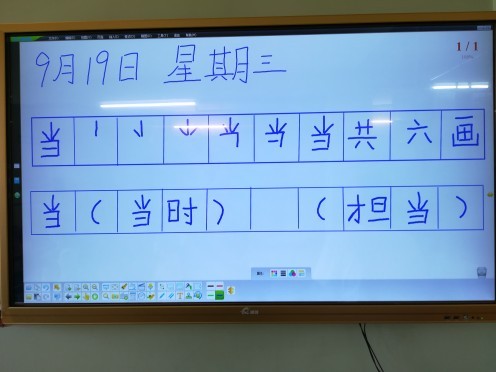 9月19日 星期三
1/1
当 丨 ⺌ 当 当 当 共 六 画
当 ( 当 时 ) ( 担 当 )